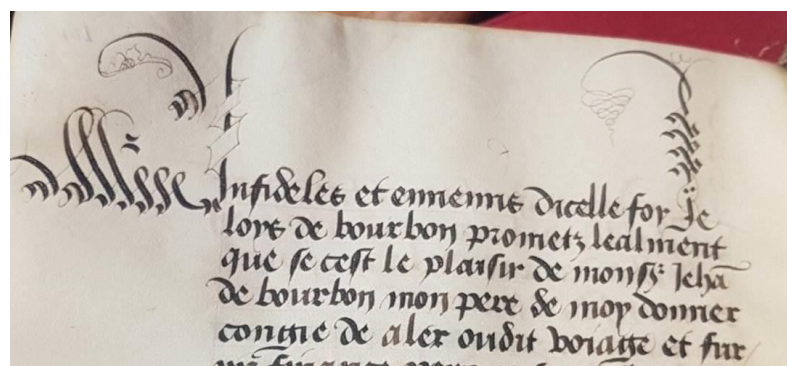 Infideles et ennemis dicelle foy Je
loys de bourbon prometz lealment
que se cest le plaisir de monsr Jehā
de bourbon mon pere de moy donner
congie de aler oudit voiaige et fur